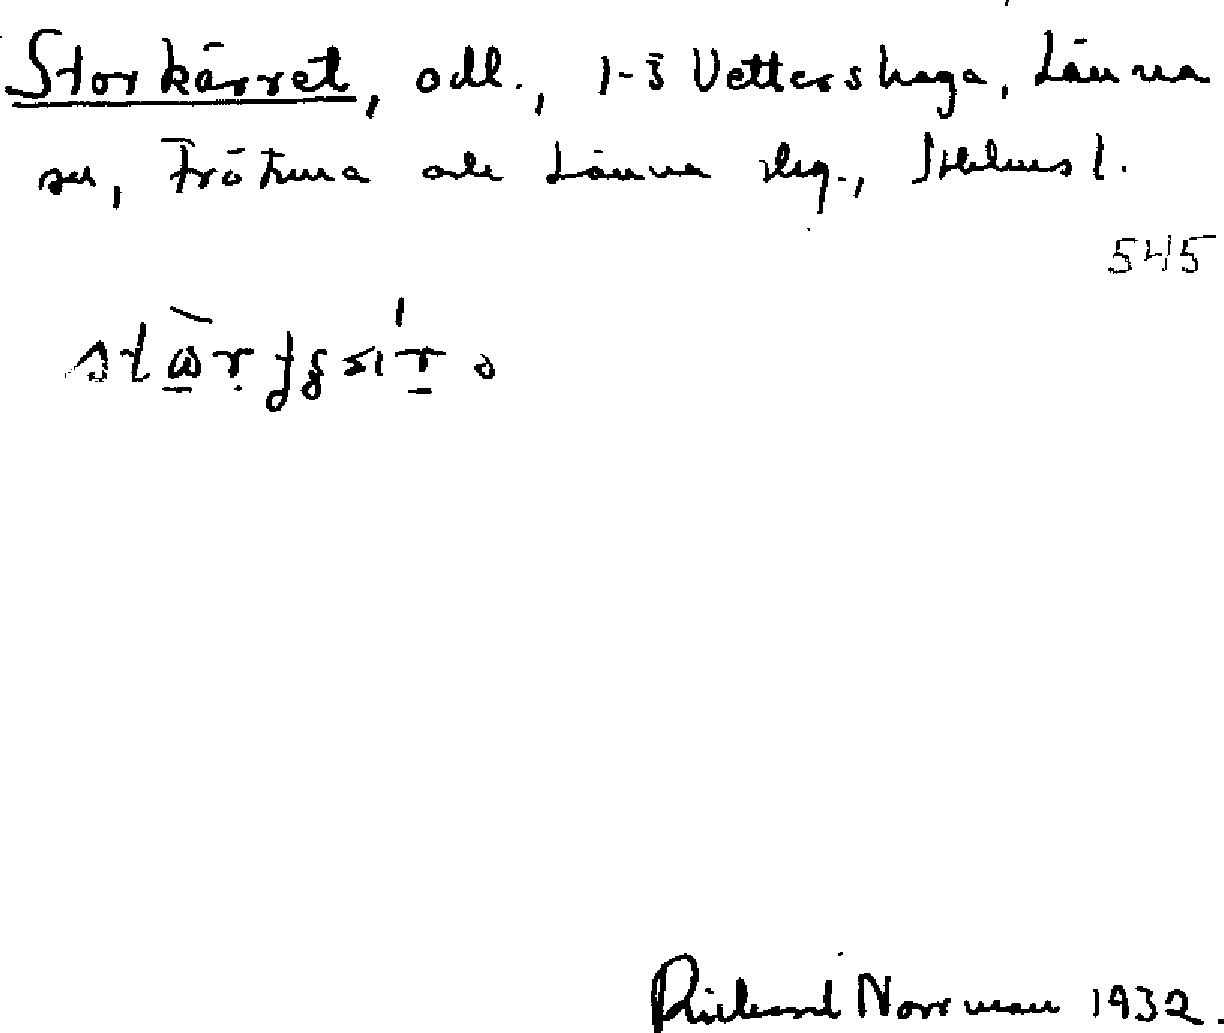 Storkärret, odl., 1-3 Vettershaga, Länna
sn, Frötuna och Länna slg., Sthlms l.
545
Rickard Norrman 1932.